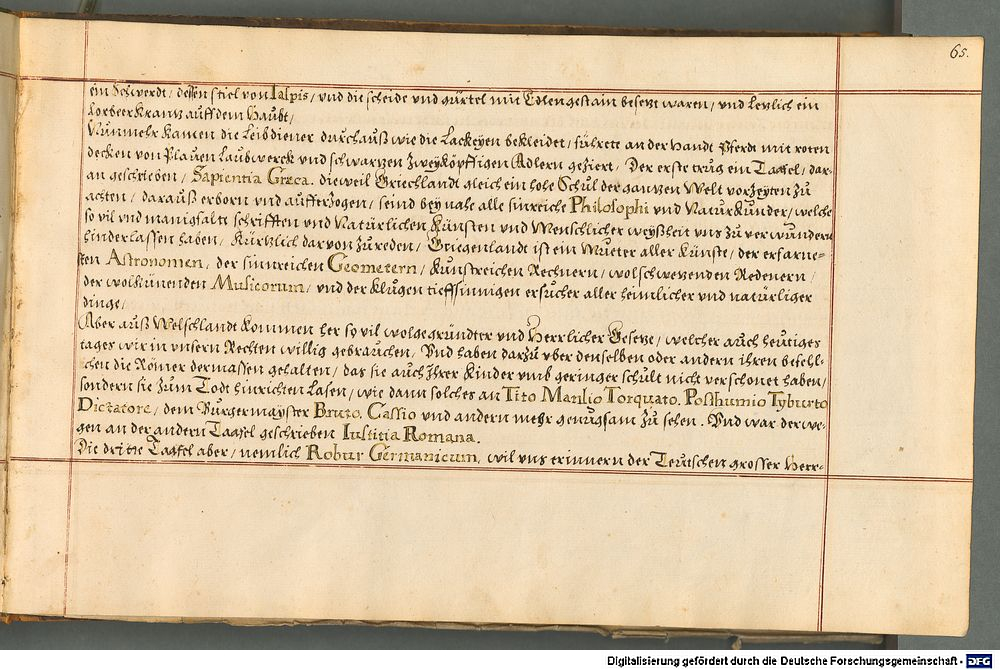 65.
ein Schwerdt / dessen stiel von Iaspis / und die scheide und gürtel mit Edlengestain besetzt waren / und letzlich ein
Lorbeer Krantz auff dem Haubt /
Nunmehr Kamen die Leibdiener durchauß wie die Lackeyen bekleidet / führete an der Handt Pferdt mit roten
decken von Plauen Laubwerck und schwartzen Zweyköpffigen Adlern geziert / Der erste trug ein Taafel / dar-
an geschrieben / Sapientia Græca. dieweil Griechlandt gleich ein hohe Schul der gantzen Welt vorzeyten zů
achten / darauß erborn und aufferzogen / seind bey nahe alle sinreiche Philosophi und Naturkünder / welche
so vil und manigfalte schrifften und Natürlichen Künsten und Menschlicher weyßheit uns zů verwundern
hinderlassen haben / Kürtzlich darvon zů reden / Griegenlandt ist ein Mueter aller Künste / der erfarne-
sten Astronomen / der sinnreichen Geometern / kunstreichen Rechnern / wolschwetzenden Redenern /
der wolkünenden Musicorum / und der Klůgen tieffsinnigen ersucher aller heimlicher und natürliger
dinge /
Aber auß Welschlandt Kommen her so vil wolgegründter und Herrlicher Gesetze / welcher auch heutiges
tages wir in unsern Rechten willig gebrauchen / Und haben darzů uber denselben oder andern ihren befehl-
ichen die Römer dermassen gehalten / das sie auch Ihrer Kinder umb geringer schult nicht verschonet haben /
sondern sie zum Todt hinrichten Lasen / wie dann solches an Tito Manlio Torquato. Posthumio Tyburto
Dictatore / dem Burgermayster Bruto. Cassio und andern mehr genugsam zů sehen. Und war derwe-
gen an der andern Taafel geschrieben Iustitia Romana.
Die dritte Taafel aber / nemlich Robur Germanicum, wil uns erinnern der Teutschen grosser Herr-
Digitalisierung gefördert durch die Deutsche Forschungsgemeinschaft - DFG